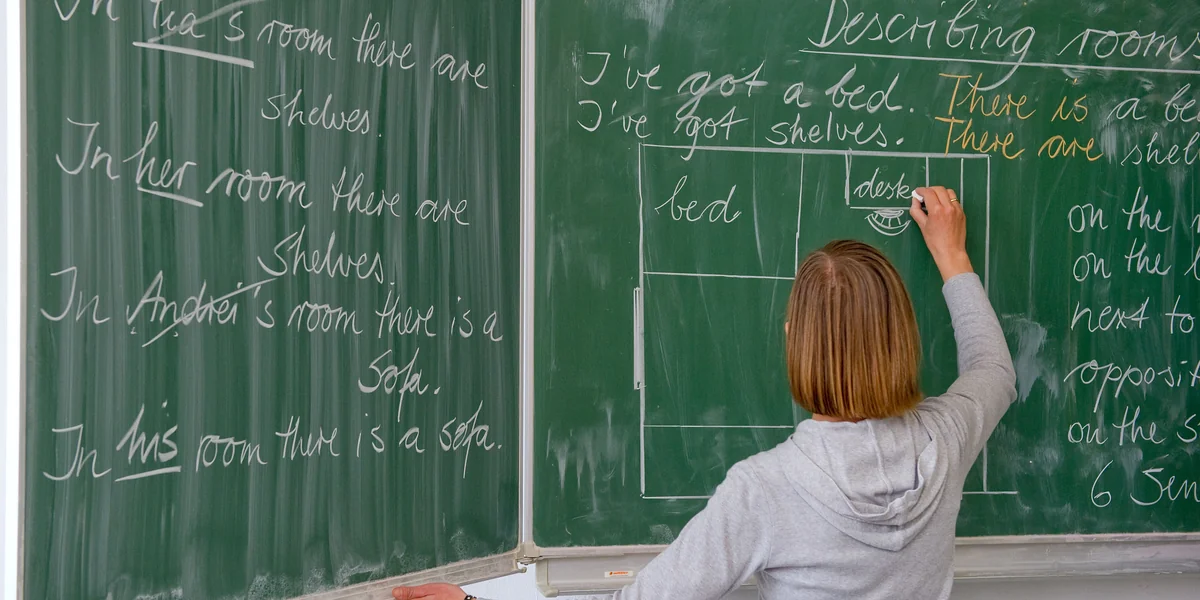 In Tea's room there are
shelves.
In her room there are
Shelves.
In Andrei's room there is a
Sofa.
In his room there is a sofa.
Describing rooms
I've got a bed. There is a
I've got shelves. There are
bed
desk
on the
on the
next to
on the
6